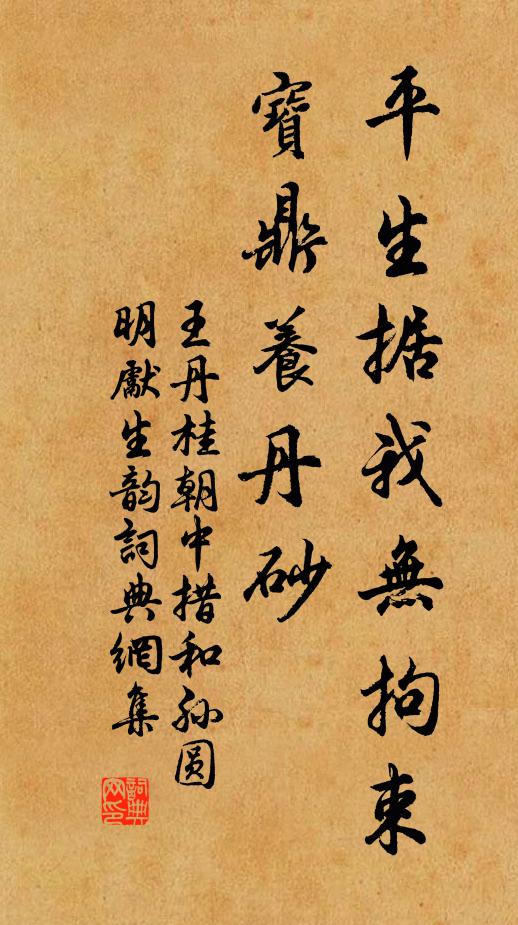 平生据我無拘束
寶鼎養丹砂
王丹桂朝中措和孙圆
明獻生韵詞典網集
詞典網印